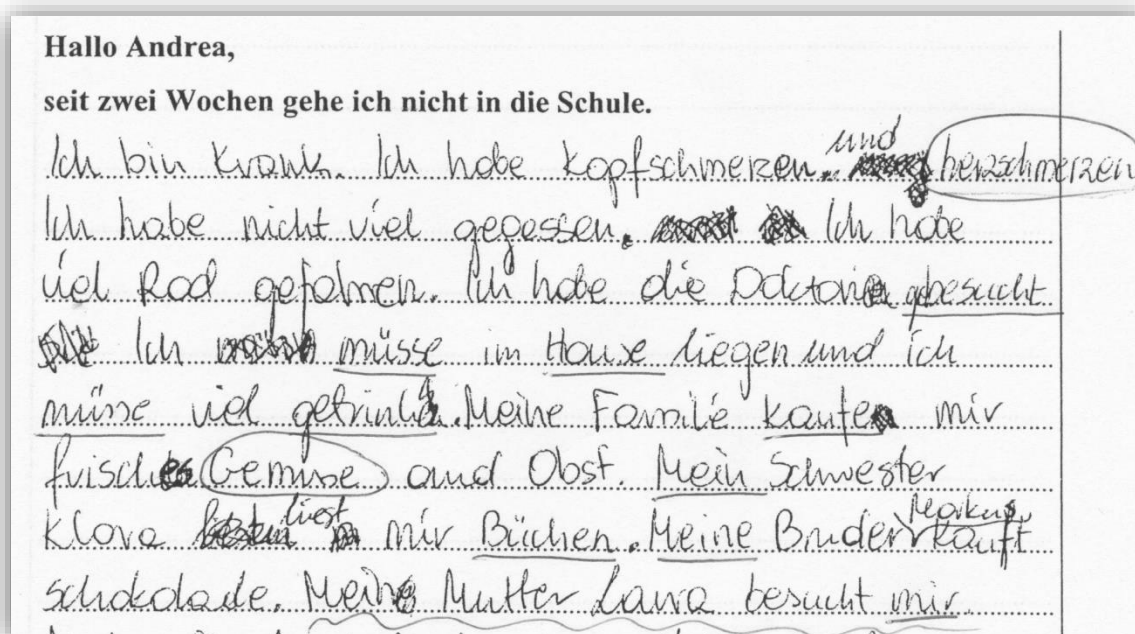 Hallo Andrea,
seit zwei Wochen gehe ich nicht in die Schule.
Ich bin Krank. Ich habe Kopfschmerzen und herzschmerzen
Ich habe nicht viel gegessen. Ich habe
viel Rad gefahren. Ich habe die gebesucht
Ich müsse im Hause liegen und ich
müsse viel getrink. Meine Familie kaufe mir
frisch Gemüse aund Obst. Mein Schwester
Klara liest mir Büchen. Meine Bruder Markus kauft
schokolade. Mein Mutter Laura besucht mir.